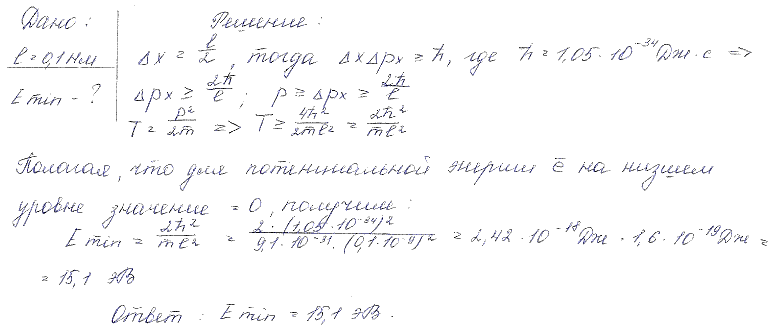 Дано: Решение:
l = 0,1 нм Δx = l/2, тогда ΔxΔpx ≥ ħ, где ħ = 1,05 · 10^-34 Дж · с =>
E min - ? Δpx ≥ 2ħ/l; p ≥ Δpx ≥ 2ħ/l
T = p²/2m => T ≥ 4ħ²/2ml² = 2ħ²/ml²
Полагая, что для потенциальной энергии ē на низшем
уровне значение = 0, получим:
E min = 2ħ²/ml² = 2 · (1,05 · 10^-34)²/9,1 · 10^-31 · (0,1 · 10^-9)² = 2,42 · 10^-18 Дж · 1,6 · 10^-19 Дж =
= 15,1 эВ
Ответ: E min = 15,1 эВ.